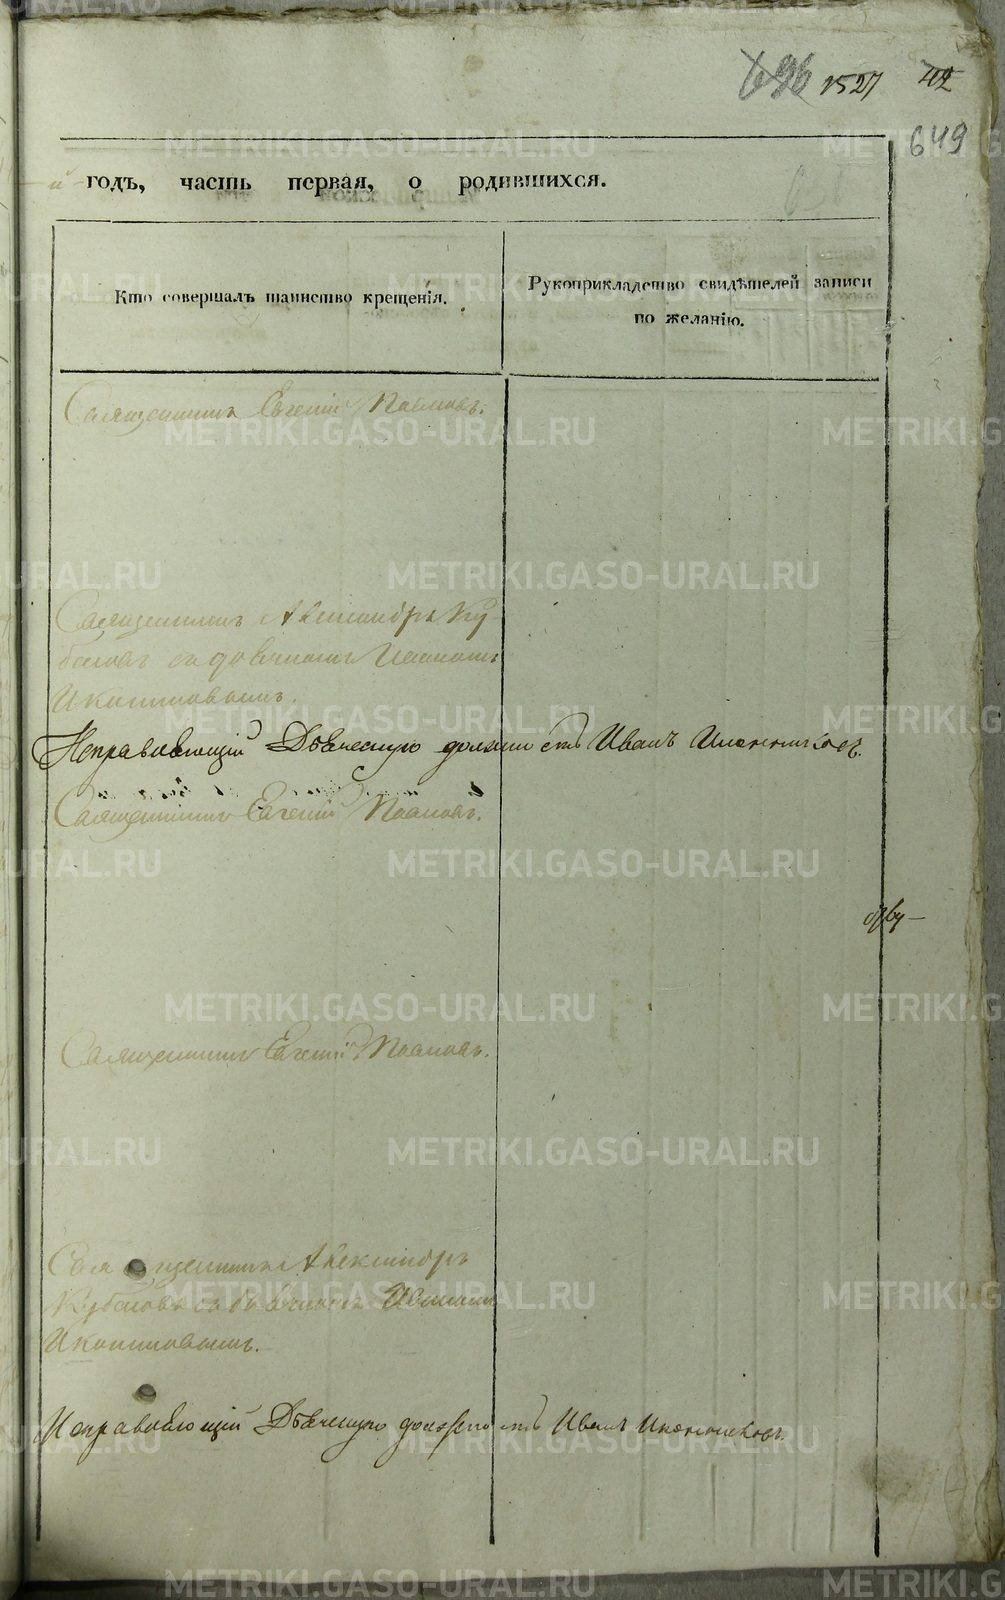 696 1527 42
649
й годъ, часть первая, о родившихся.
Кто совершалъ таинство крещенія.
Рукоприкладство свидѣтелей записи
по желанію.
Священникъ Евгеній Поповъ.
Священникъ Александръ Ку-
басовъ съ дьячкомъ Иваномъ
Исправляющій Дьяческую должность Иванъ
Священникъ Евгеній Поповъ.
Священникъ Евгеній Поповъ.
Священникъ Александръ
Кубасовъ съ дьячкомъ Иваномъ
Исправляющій Дьяческую должность Иванъ
METRIKI.GASO-URAL.RU